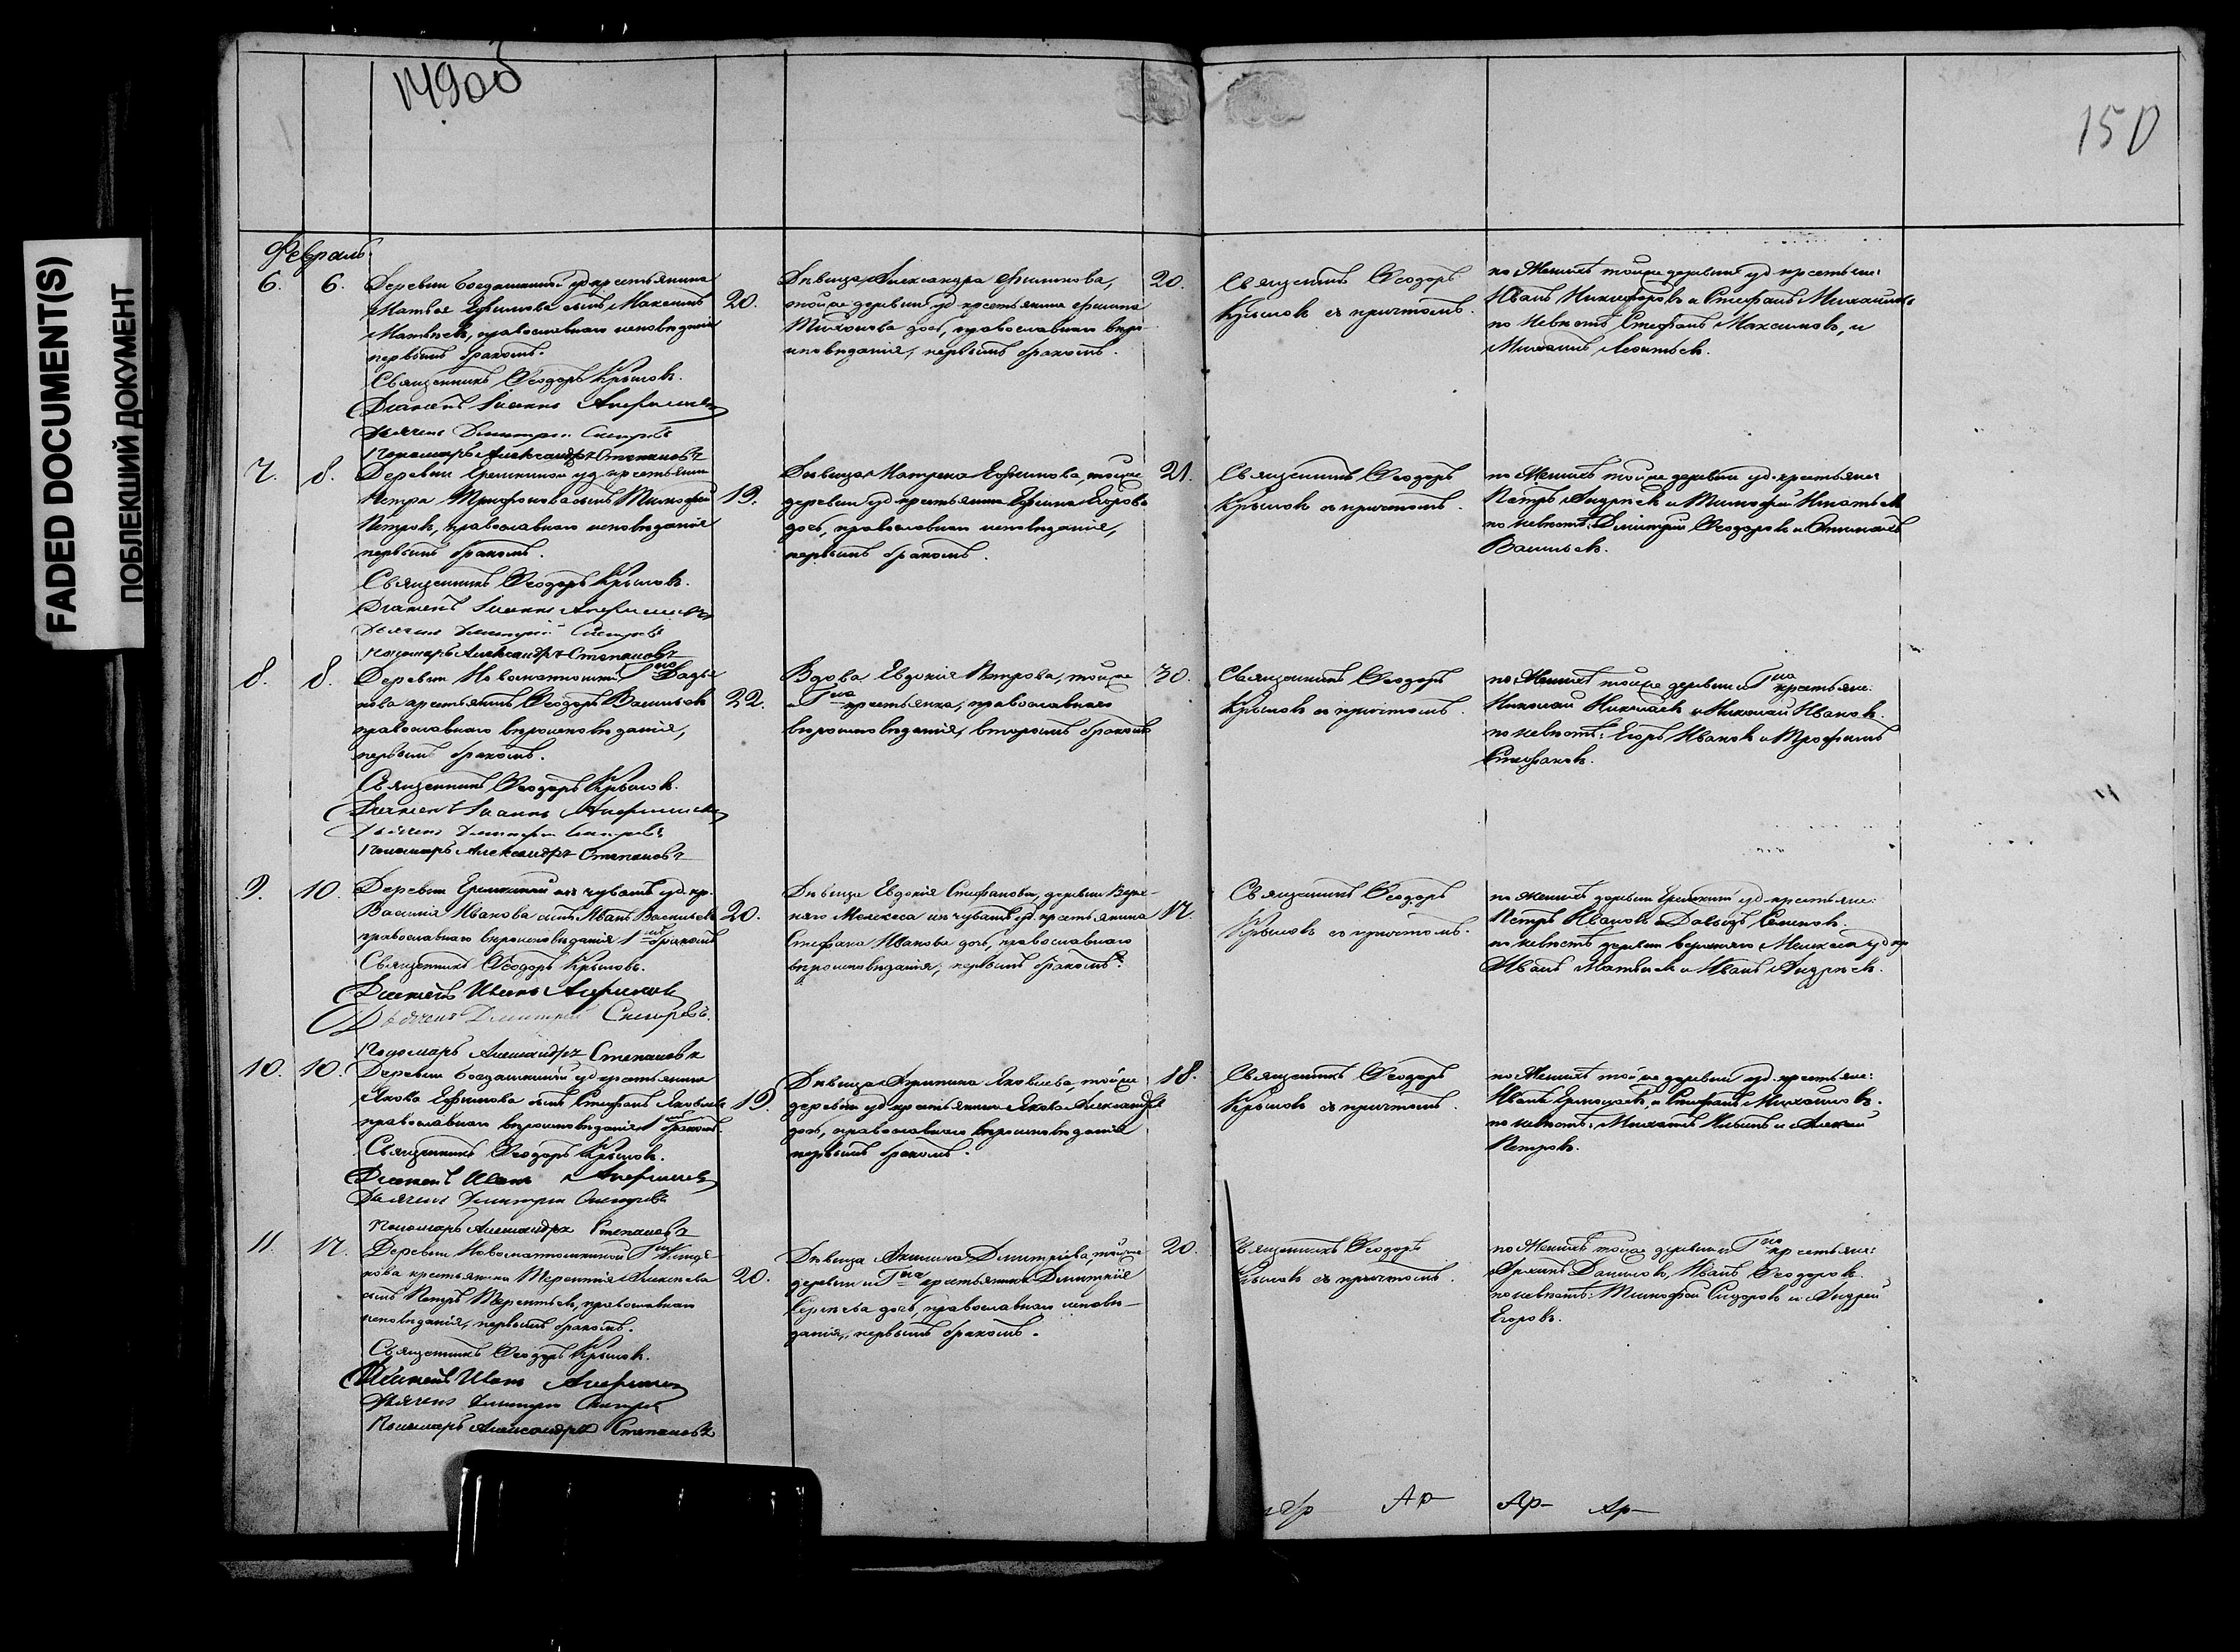 FADED DOCUMENT(S)
ПОБЛЕКШИЙ ДОКУМЕНТ
149об
150
Февраль.
6. 6. Деревни удкрестьянина
Матвея Ефимова сынъ Максимъ 20.
Матвѣевъ, православнаго исповѣданія
первымъ бракомъ.
Священникъ Ѳеодоръ Крыловъ.
Діаконъ Іоаннъ
Дьячекъ Димитрій
Пономарь Александръ Степановъ
Дѣвица Александра Филипова, 20.
тойже деревни уд крестьянина Филипа
дочь, православнаго вѣро-
исповѣданія, первымъ бракомъ.
Священникъ Ѳеодоръ
Крыловъ съ причтомъ.
по Женихѣ тойже деревни уд крестьяне:
Иванъ Никифоровъ и Стефанъ Михайловъ
по невѣстѣ Стефанъ Максимовъ, и
Михаилъ Леонтьевъ.
7. 8. Деревни уд. крестьянина
Петра Трифонова сынъ Тимофей 19.
Петровъ, православнаго исповѣданія
первымъ бракомъ.
Священникъ Ѳеодоръ Крыловъ.
Діаконъ Іоаннъ
Дьячекъ Димитрій
Пономарь Александръ Степановъ
Дѣвица Матрена Ефимова, тойже 21.
деревни уд крестьянина Ефима Егорова
дочь, православнаго исповѣданія,
первымъ бракомъ.
Священникъ Ѳеодоръ
Крыловъ съ причтомъ.
по Женихѣ тойже деревни уд. крестьяне
Петръ Андреевъ и Тимофей Игнатьевъ
по невѣстѣ: Димитрій Ѳеодоровъ и
Васильевъ.
8. 8. Деревни Гна
крестьянинъ Ѳеодоръ Васильевъ 22.
православнаго вѣроисповѣданія,
первымъ бракомъ.
Священникъ Ѳеодоръ Крыловъ.
Діаконъ Іоаннъ
Дьячекъ Димитрій
Пономарь Александръ Степановъ
Вдова Евдокія Петрова, тойже 30.
и Гна крестьянка, православнаго
вѣроисповѣданія, вторымъ бракомъ
Священникъ Ѳеодоръ
Крыловъ съ причтомъ.
по Женихѣ тойже деревни и Гна крестьяне:
Николай Николаевъ и Николай Ивановъ.
по невѣстѣ: Егоръ Ивановъ и Трофимъ
Стефановъ.
9. 10. Деревни изъ чувашъ уд. кр.
Василія Иванова сынъ Иванъ Васильевъ 20.
православнаго вѣроисповѣданія 1мъ бракомъ
Священникъ Ѳеодоръ Крыловъ.
Діаконъ Иванъ
Дьячекъ Димитрій
Пономарь Александръ Степановъ
Дѣвица Евдокія Стефанова, деревни Верх-
няго Мелекеса изъ чувашъ уд. крестьянина 17.
Стефана Иванова дочь, православнаго
вѣроисповѣданія, первымъ бракомъ.
Священникъ Ѳеодоръ
Крыловъ съ причтомъ.
по Женихѣ деревни уд крестьяне:
Петръ Ивановъ и Давыдъ Семеновъ.
по невѣстѣ деревни верхняго Мелекеса уд кр
Иванъ Матвѣевъ и Иванъ Андреевъ.
10. 10. Деревни уд крестьянина
Якова Ефимова сынъ Стефанъ Яковлевъ 19.
православнаго вѣроисповѣданія 1мъ бракомъ.
Священникъ Ѳеодоръ Крыловъ.
Діаконъ Иванъ
Дьячекъ Димитрій
Пономарь Александръ Степановъ
Дѣвица Яковлева, тойже 18.
деревни уд крестьянина Якова
дочь, православнаго вѣроисповѣданія
первымъ бракомъ.
Священникъ Ѳеодоръ
Крыловъ съ причтомъ.
по Женихѣ тойже деревни уд. крестьяне:
Иванъ и Стефанъ Михайловъ.
по невѣстѣ: Михаилъ Ильинъ и Алексей
Петровъ.
11. 17. Деревни Гна
крестьянина Терентія Алексѣева 20.
сынъ Петръ Терентьевъ, православнаго
исповѣданія, первымъ бракомъ.
Священникъ Ѳеодоръ Крыловъ.
Діаконъ Иванъ
Дьячекъ Димитрій
Пономарь Александръ Степановъ
Дѣвица Димитріева, тойже 20.
деревни и Гна крестьянина Димитрія
Сергѣева дочь, православнаго исповѣ-
данія, первымъ бракомъ.
Священникъ Ѳеодоръ
Крыловъ съ причтомъ.
по Женихѣ тойже деревни и Гна крестьяне:
Даниловъ, Иванъ Ѳеодоровъ.
по невѣстѣ: Тимофей Сидоровъ и Андрей
Егоровъ.
Ар Ар Ар